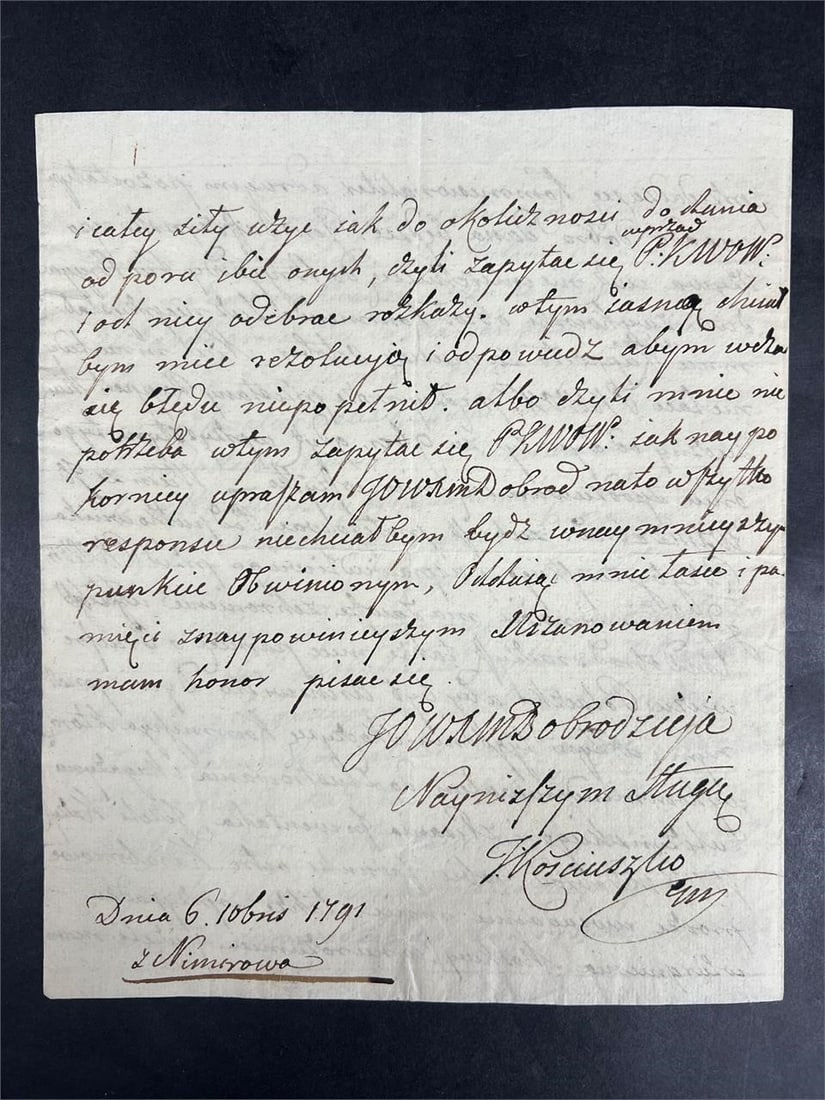 i całey siły użyć iak do okolicznosci do dania
wprzod
odporu ibić onych, czyli zapytać się P: KWOW:
i od niey odebrać rozkazy. wtym iasną chciał
bym mieć rezolucyią i odpowiedz abym wcza
się błędu niepopełnił. albo czyli mnie nie
potrzeba wtym zapytać się PKWOW: iak naypo
korniey upraszam JOWKMDobrod nato wszytko
responsu niechciałbym bydz wnaymnieyszy
punkcie Obwinionym, Oddaią mnie łasce i pa
mięci znaypowinieyszym Uszanowaniem
mam honor pisać się.
JOWKMDobrodzieja
Nayniższym Sługą
T: Kosciuszko
Dnia 6. 10bris 1791
z Nimirowa